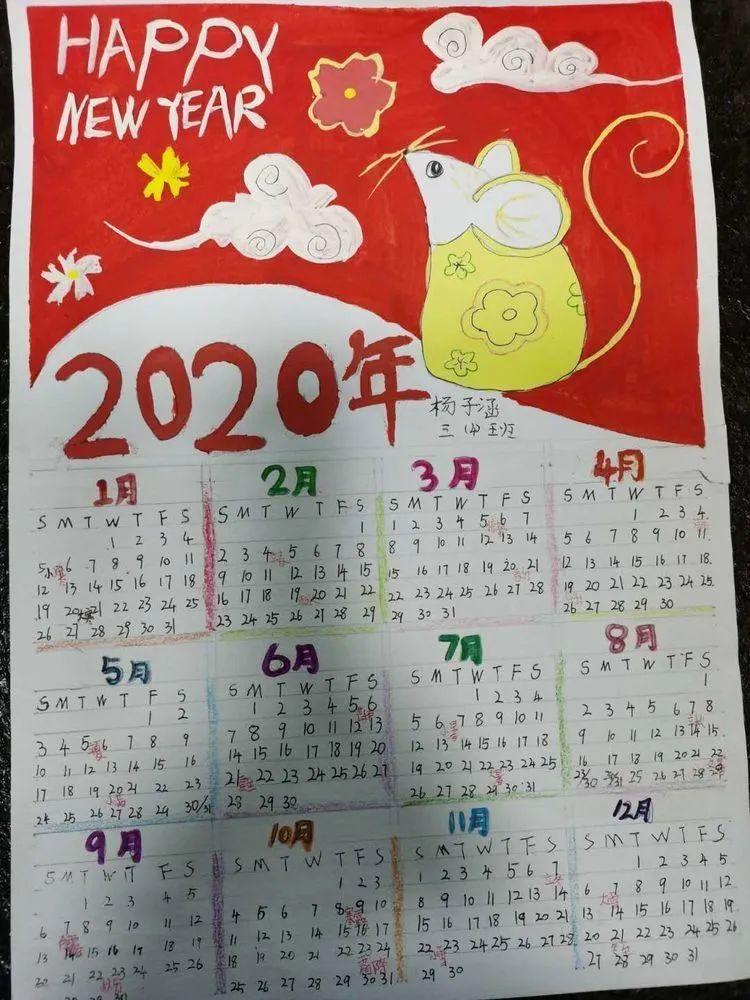 HAPPY
NEW YEAR
2020年
杨子涵
三(4)班
1月
S M T W T F S
1 2 3 4
5 6 7 8 9 10 11
12 13 14 15 16 17 18
19 20 21 22 23 24 25
26 27 28 29 30 31
2月
S M T W T F S
1
2 3 4 5 6 7 8
9 10 11 12 13 14 15
16 17 18 19 20 21 22
23 24 25 26 27 28 29
3月
S M T W T F S
1 2 3 4 5 6 7
8 9 10 11 12 13 14
15 16 17 18 19 20 21
22 23 24 25 26 27 28
29 30 31
4月
S M T W T F S
1 2 3 4
5 6 7 8 9 10 11
12 13 14 15 16 17 18
19 20 21 22 23 24 25
26 27 28 29 30
5月
S M T W T F S
1 2
3 4 5 6 7 8 9
10 11 12 13 14 15 16
17 18 19 20 21 22 23
24 25 26 27 28 29 30/31
6月
S M T W T F S
1 2 3 4 5 6
7 8 9 10 11 12 13
14 15 16 17 18 19 20
21 22 23 24 25 26 27
28 29 30
7月
S M T W T F S
1 2 3 4
5 6 7 8 9 10 11
12 13 14 15 16 17 18
19 20 21 22 23 24 25
26 27 28 29 30 31
8月
S M T W T F S
1
2 3 4 5 6 7 8
9 10 11 12 13 14 15
16 17 18 19 20 21 22
23/30 24/31 25 26 27 28 29
9月
S M T W T F S
1 2 3 4 5
6 7 8 9 10 11 12
13 14 15 16 17 18 19
20 21 22 23 24 25 26
10月
S M T W T F S
1 2 3
4 5 6 7 8 9 10
11 12 13 14 15 16 17
18 19 20 21 22 23 24
霜降
25 26 27 28 29 30 31
11月
S M T W T F S
1 2 3 4 5 6 7
8 9 10 11 12 13 14
15 16 17 18 19 20 21
22 23 24 25 26 27 28
29 30
12月
S M T W T F S
1 2 3 4 5
6 7 8 9 10 11 12
13 14 15 16 17 18 19
20 21 22 23 24 25 26
27 28 29 30 31